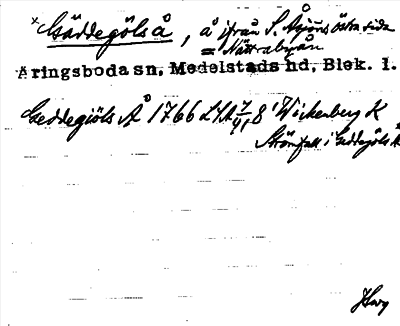 × Gäddegöls å, å ifrån S. Åsjöns östra sida
= Nättrabyån
Äringsboda sn, Medelstads hd, Blek. l.
Geddegiöls Å 1766 LSA 7/4, 8 'Wickenberg K
Strömfall i Geddegöls Å